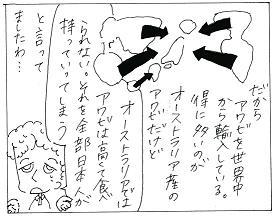 だから
アワビを世界中
から輸入している。
得に多いのが
オーストラリア産の
アワビだけど
オーストラリアでは
アワビは高くて食べ
られない。それを全部日本人が
持っていってしまう
と言って
ましたわ…